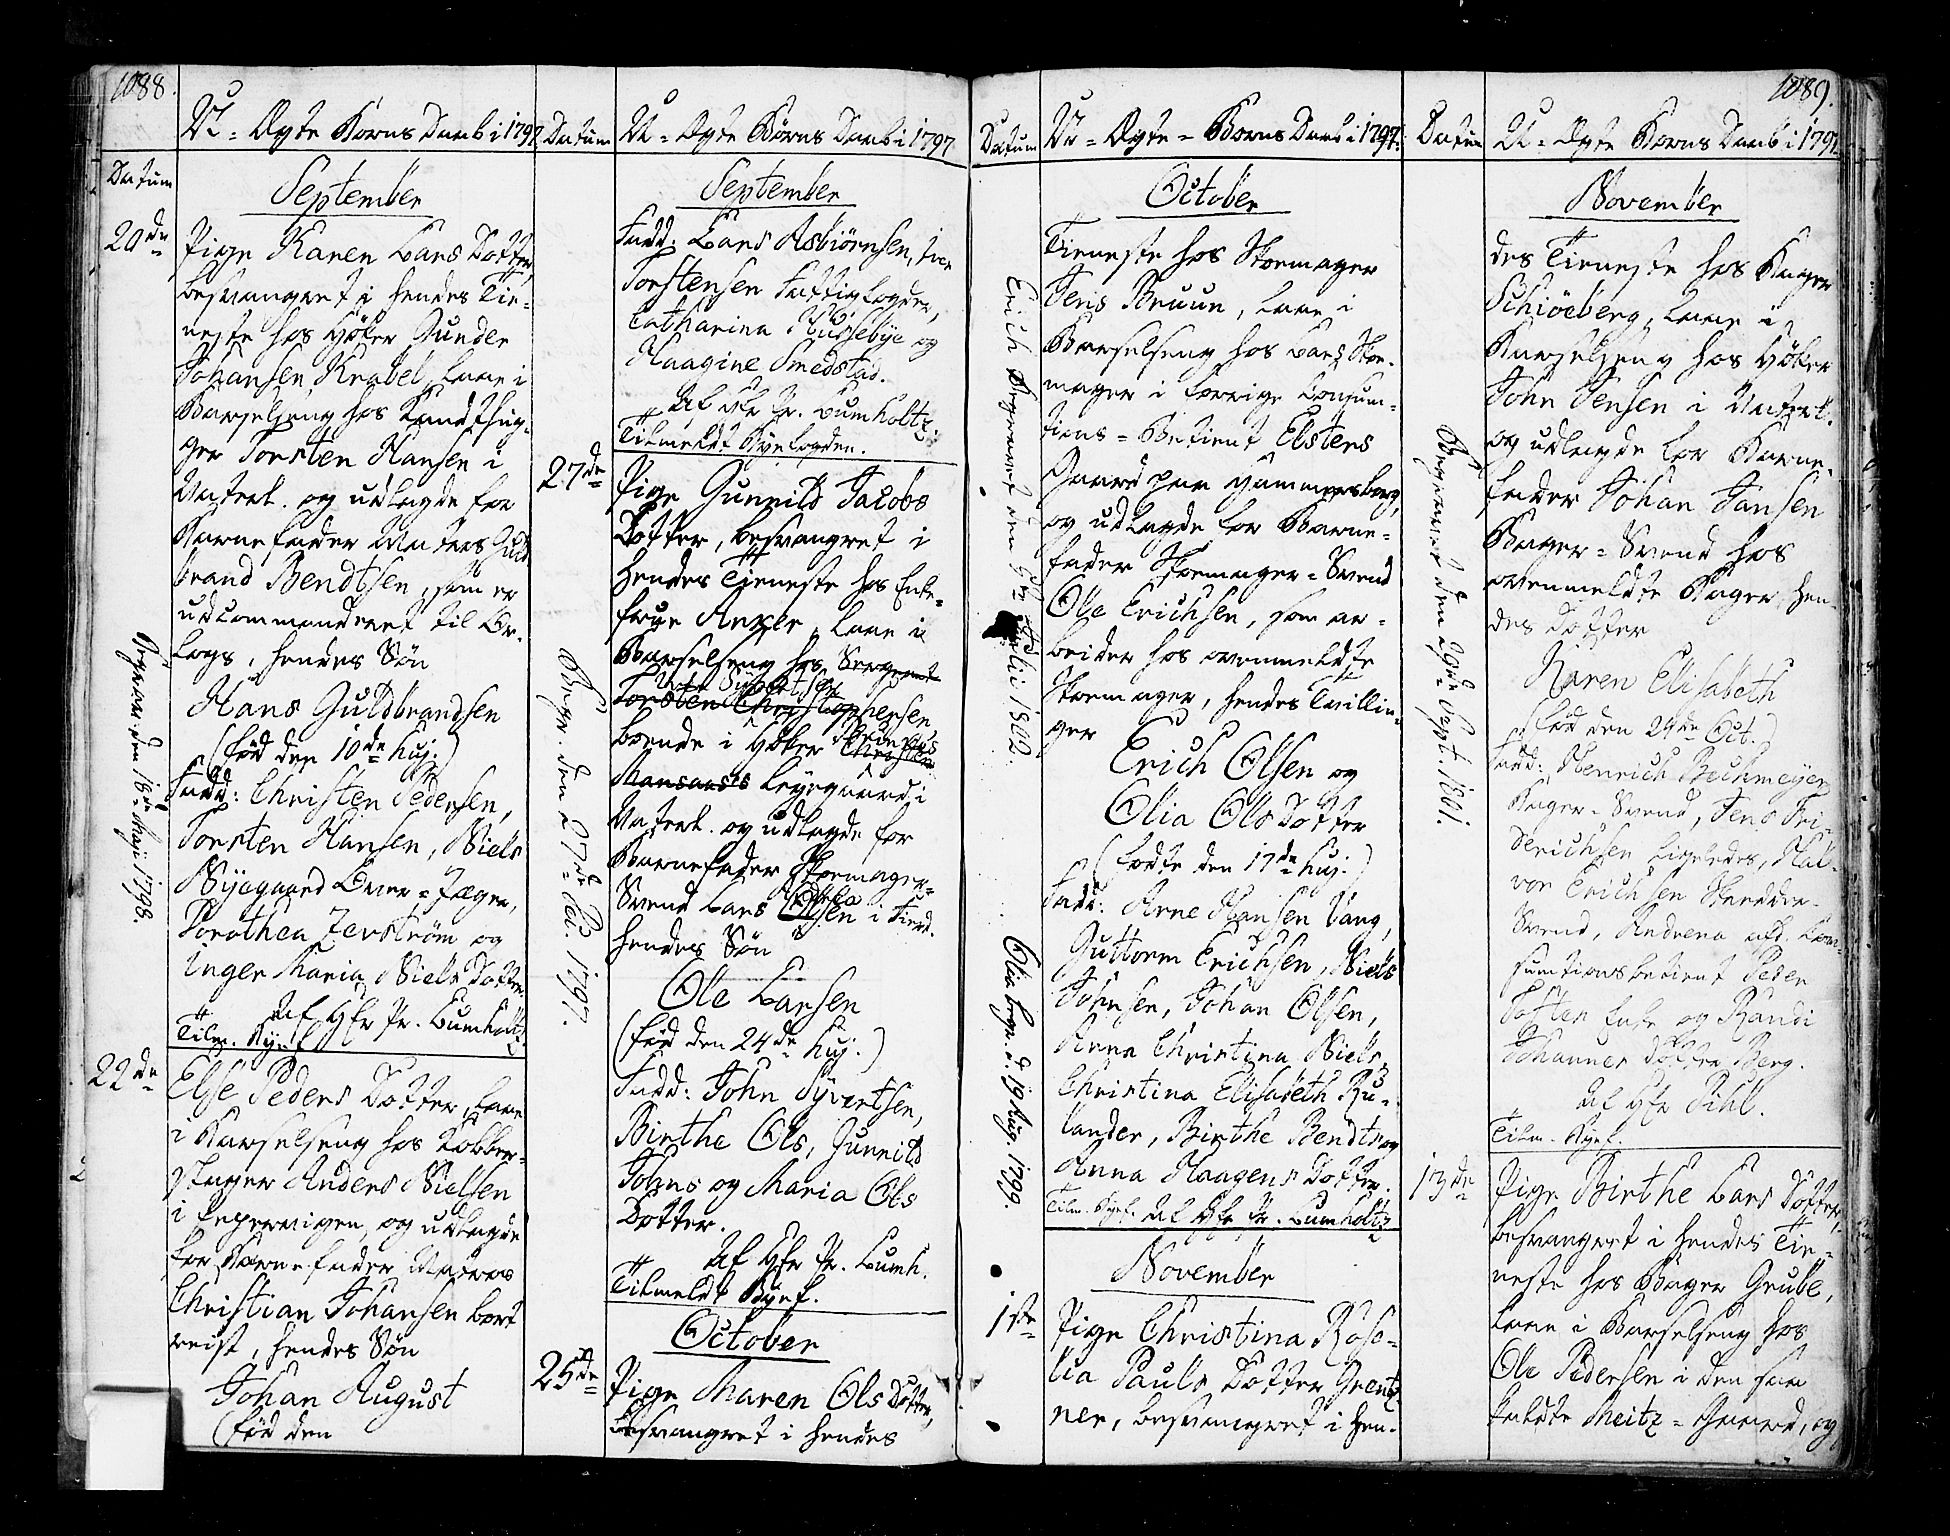 1088.
U-Ægte Børns Daab i 1797
Datum
September
20de
Pige Karen Lars Dotter,
besvangret i hendes Tie-
neste hos Høker Gunder
Johansen Krabel, laae i
Barselseng hos
ger Torsten Hansen i
Vaterl. og udlagde for
Barnefader Matros Guld
brand Bendtsen, som er
udcommanderet til Or-
logs, hendes Søn
Hans Guldbrandsen
(fød den 10de huj.)
Fadd: Christen Pedersen,
Torsten Hansen, Niels
Nyegaard Over-Jæger,
Dorothea Zerström og
Inger Maria Niels Dotter.
Af Hr Pr. Lumholtz
Tilm. Byef.
Begravet den 18de Maji 1798.
22de
Else Peders Dotter, laae
i Barselseng hos Kobber-
slager Anders Nielsen
i Pepervigen, og udlagde
for Barnefader Matros
Christian Johansen bort
reist, hendes Søn
Johan August
(fød den
Datum
U-Ægte Børns Daab i 1797
September
Fadd: Lars Asbiörnsen, Iver
Torstensen Fattigfogder,
Catharina Hussebye og
Haagine Smedstad.
Af Hr Pr. Lumholtz.
Tilmeldt Byefogden.
27de
Pige Gunnild Jacobs
Dotter, besvangret i
hendes Tjeneste hos Enke-
frue Anker, laae i
Barselseng hos Sergeant
Torsten Christophersen
boende i Høker
Mansaas's Leyegaard i
Vaterl. og udlagde for
Barnefader Skomager-
Svend Lars Olsen i Fierd.
hendes Søn
Ole Larsen
(fød den 24de huj.)
Fadd: John Syvertsen,
Birthe Ols, Gunnild
Johns og Maria Ols
Dotter.
Af Hr Pr. Lumh.
Tilmeldt Byef.
Begr. den 27de 1797.
October
25de
Pige Maren Ols Dotter,
besvangret i hendes
Datum
U-Ægte-Børns Daab i 1797.
October
Tieneste hos Skomager
Jens Bruun, laae i
Barselseng hos Lars Sko-
mager i forrige Consum-
tions-Betient Elsters
Gaard paa Hammersborg,
og udlagde for Barne-
fader Skomager-Svend
Ole Erichsen, som ar-
beider hos ovenmeldte
Skomager, hendes Tvillin-
ger
Erich Olsen og
Olia Ols Dotter
(fødte den 17de huj.)
Fadd: Arne Hansen Vang,
Guttorm Erichsen, Niels
Johnsen, Johan Olsen,
Anna Christina Niels,
Christina Elisabeth Ru-
lander, Birthe Bendts og
Anna Haagens Dotter.
Tilm. Byef. Af Hr Pr. Lumholtz
Erich Begravet den 5te Julii 1802.
Olia begr. d. 19 Aug. 1799.
November
1ste
Pige Christina Rose-
lia Pauls Dotter Grentz
ner, besvangret i hen-
1089.
Datum
U-Ægte Børns Daab i 1797
November
des Tieneste hos Bager
Schiöeberg, laae i
Barselseng hos Høker
John Jensen i Vaterl.
og udlagde for Barne-
fader Johan Jansen
Bager-Svend hos
ovenmeldte Bager, hen-
des Dotter
Karen Elisabeth
(fød den 29de Oct.)
Fadd: Henrich Bechmeyer
Bager-Svend, Jens Fri-
derichsen ligeledes, Hal-
vor Erichsen Skredder-
Svend, Andrena afd. Con-
sumtionsbetient Peder
Toften Enke og Randi
Johannes Dotter Berg.
Af Hr Pihl.
Tilm. Byef.
Begravet den 29de Sept. 1801.
13de
Pige Birthe Lars Dotter,
besvangret i hendes Tie-
neste hos Bager Grube,
laae i Barselseng hos
Ole Pedersen i den saa
kaldte Meitz-Gaard, og